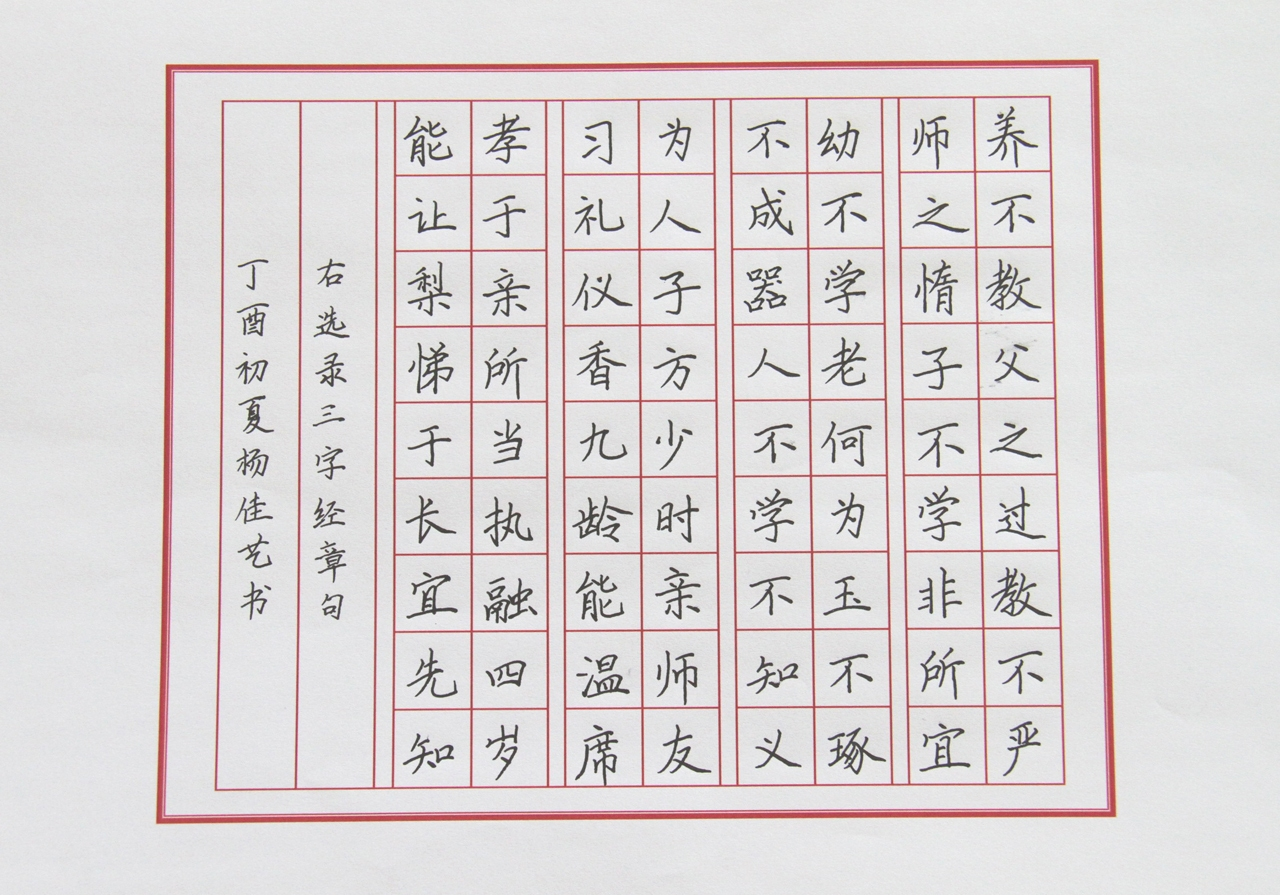 养不教父之过教不严
师之惰子不学非所宜
幼不学老何为玉不琢
不成器人不学不知义
为人子方少时亲师友
习礼仪香九龄能温席
孝于亲所当执融四岁
能让梨悌于长宜先知
右选录三字经章句
丁酉初夏杨佳艺书